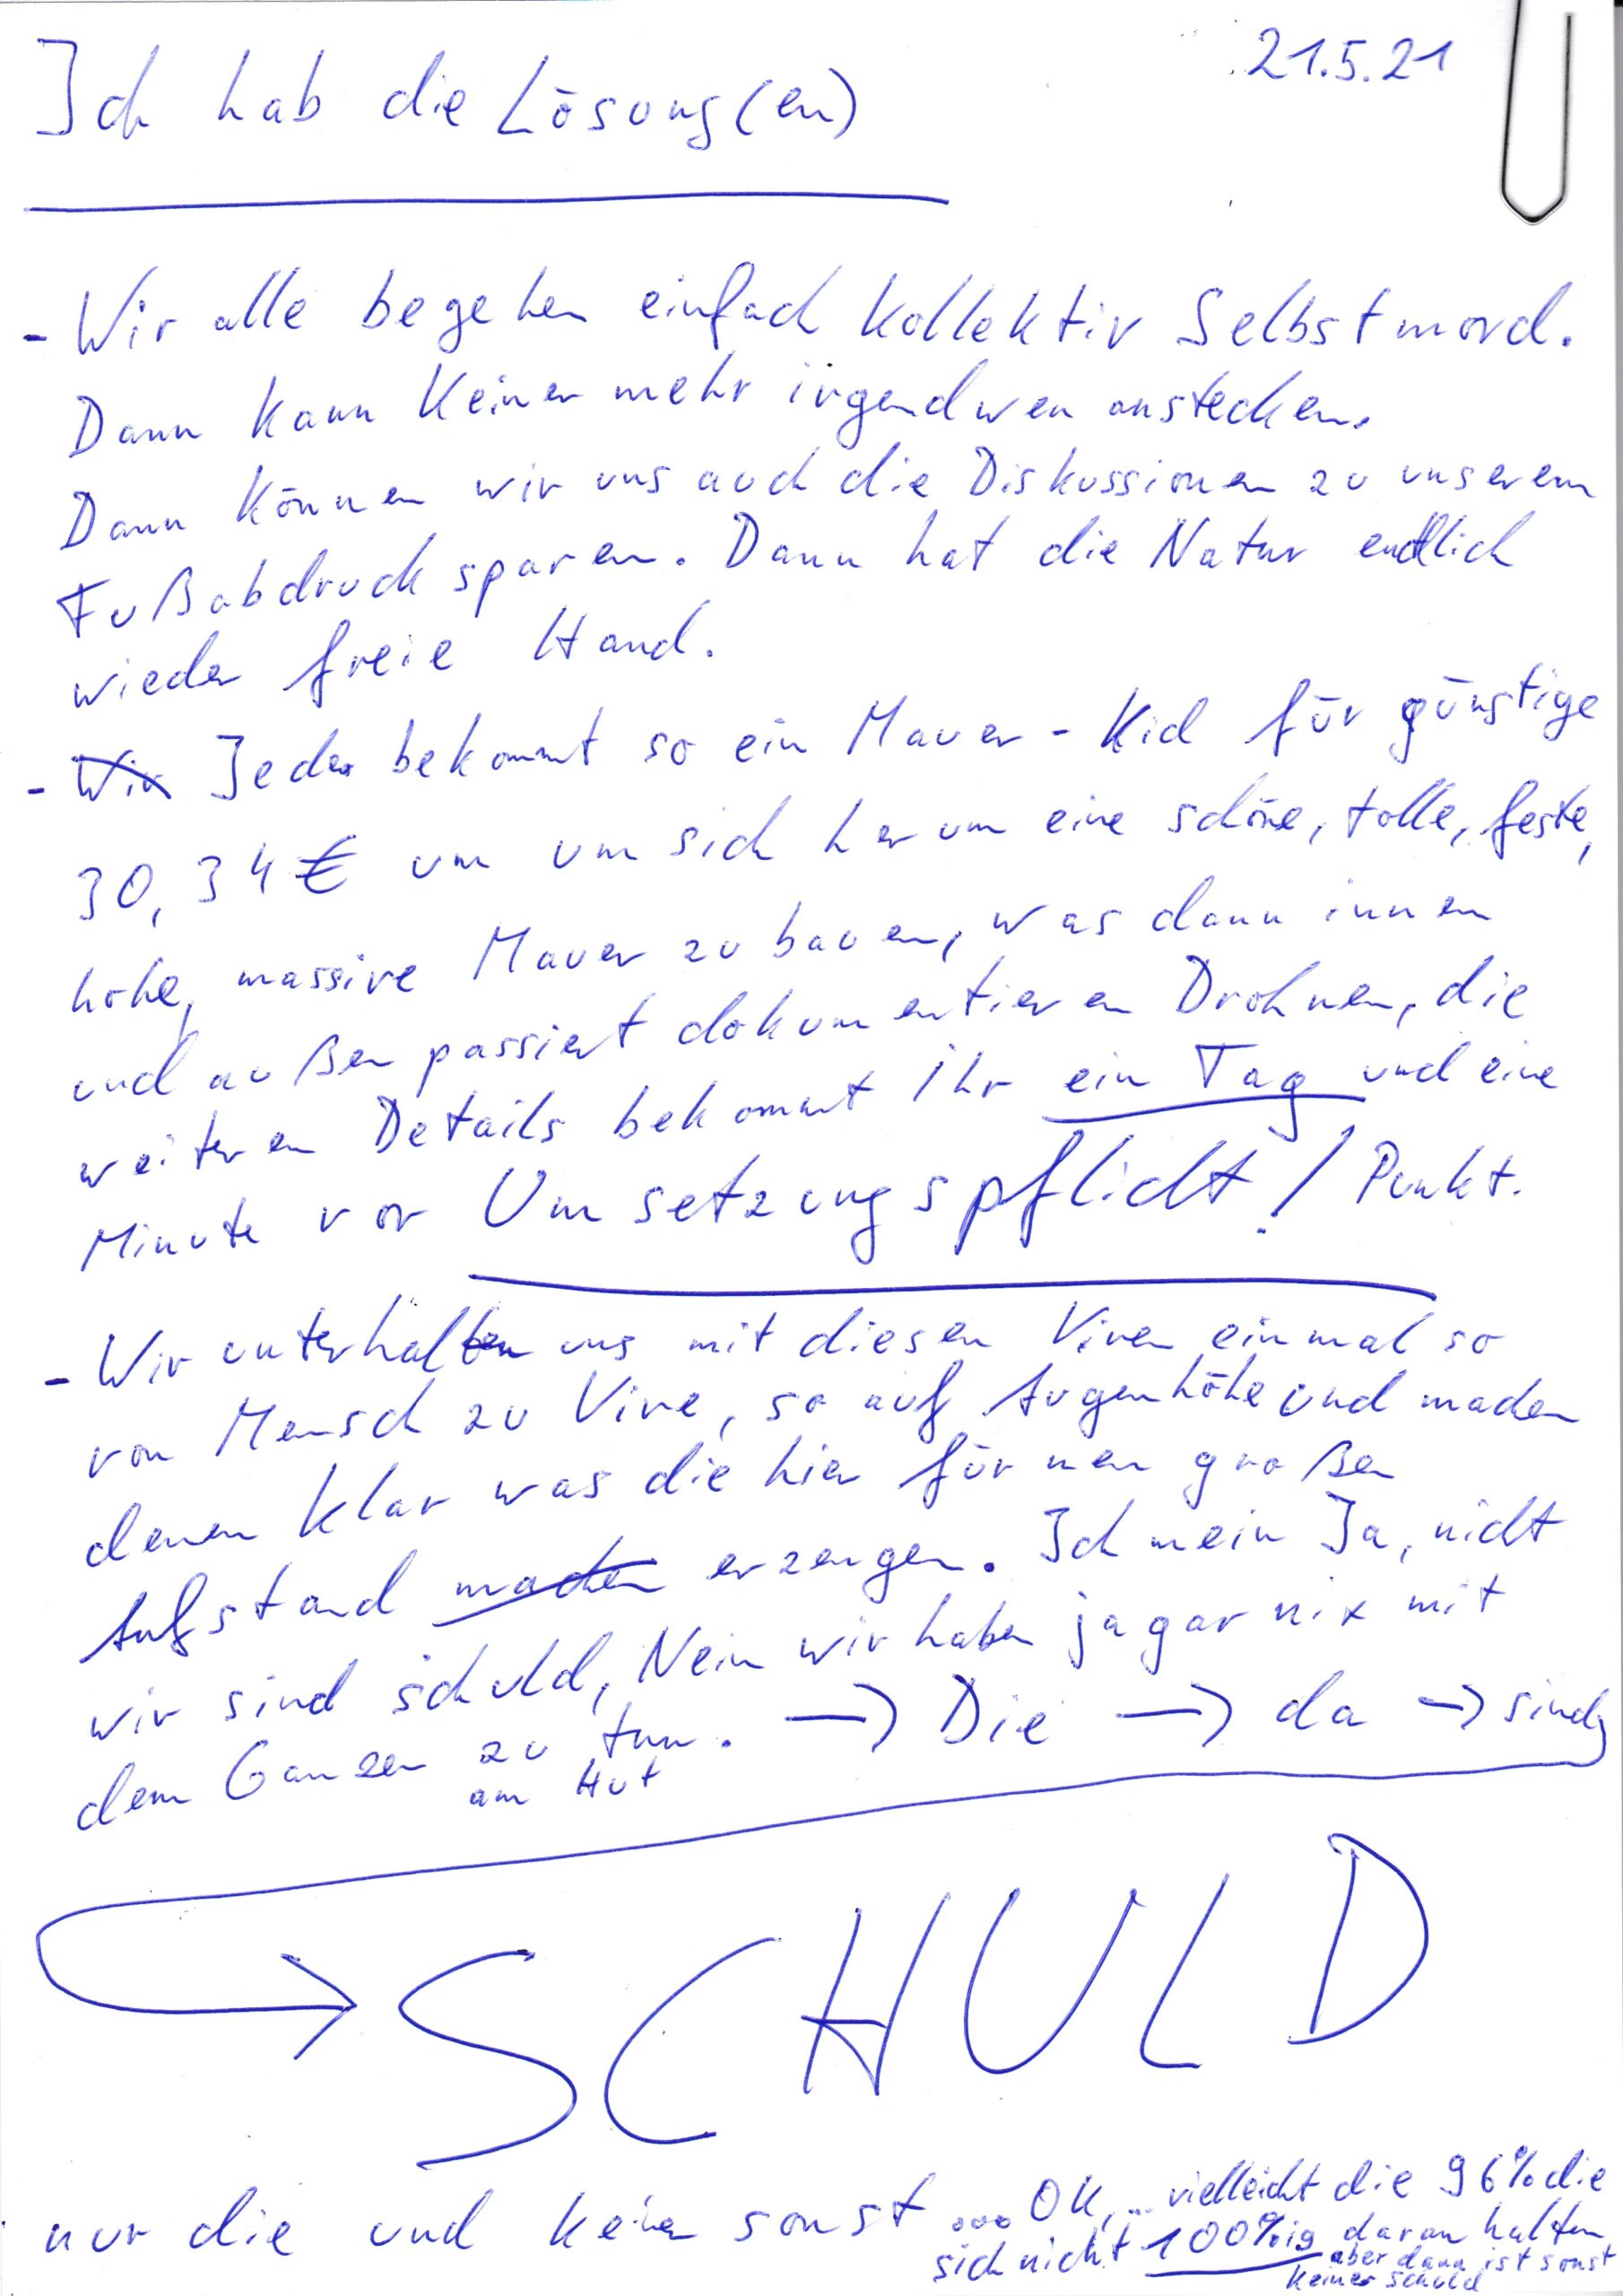 21.5.21
Ich hab die Lösung(en)
- Wir alle begehen einfach kollektiv Selbstmord.
Dann kann keiner mehr irgendwen anstecken.
Dann können wir uns auch die Diskussionen zu unserem
Fußabdruck sparen. Dann hat die Natur endlich
wieder freie Hand.
- Wir Jeder bekommt so ein Mauer-Kid für günstige
30,34€ um um sich herum eine schöne, tolle, feste,
hohe, massive Mauer zu bauen, was dann innen
und außen passiert dokumentieren Drohnen, die
weiteren Details bekommt ihr ein Tag und eine
Minute vor Umsetzungspflicht! Punkt.
- Wir unterhalten uns mit diesen Viren einmal so
von Mensch zu Vire, so auf Augenhöhe und machen
denen klar was die hier für nen großen
Aufstand machen erzeugen. Ich mein Ja, nicht
wir sind schuld, Nein wir haben ja gar nix mit
dem Ganzen zu tun. → Die → da → sind
am Hut
→ SCHULD
nur die und keiner sonst ... OK, ... vielleicht die 96% die
sich nicht 100%ig daran halten
aber dann ist sonst
keiner schuld